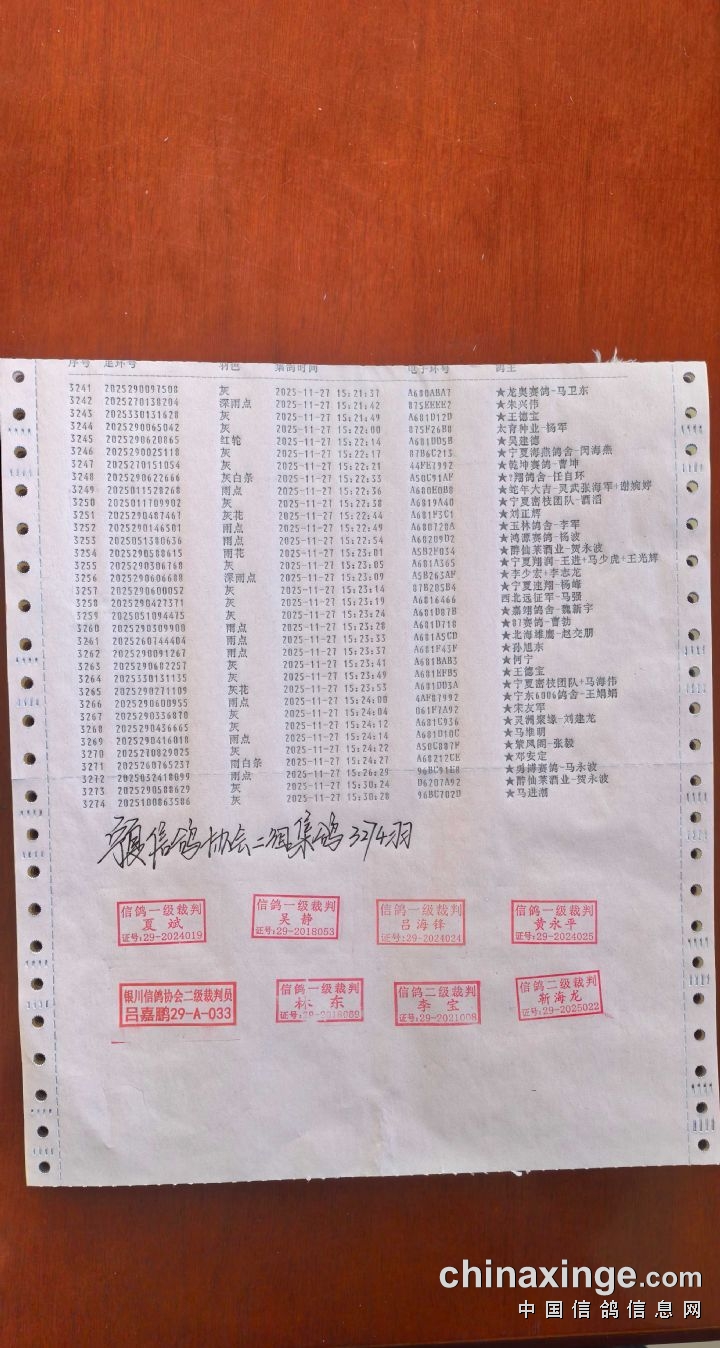 序号 足环号 羽色 集鸽时间 电子环号 鸽主
3241 2025290097508 灰 2025-11-27 15:21:37 A680ABA7 ★龙奥赛鸽-马卫东
3242 2025270138204 深雨点 2025-11-27 15:21:42 875EEEE2 ★朱兴伟
3243 2025330131628 灰 2025-11-27 15:21:54 A681D12D ★王德宝
3244 2025290065042 灰 2025-11-27 15:22:00 875F26B8 太育种业-杨军
3245 2025290620865 红轮 2025-11-27 15:22:14 A681DD5B ★吴建德
3246 2025290025118 灰 2025-11-27 15:22:17 87B6C213 ★宁夏海燕鸽舍-闵海燕
3247 2025270151054 灰 2025-11-27 15:22:21 44FE7992 ★乾坤赛鸽-曹坤
3248 2025290622666 灰白条 2025-11-27 15:22:33 A50C91AF ★?翔鸽舍-任自环
3249 2025011528268 雨点 2025-11-27 15:22:36 A680E0B8 ★蛇年大吉-灵武张海军+谢婉婷
3250 2025011709902 灰 2025-11-27 15:22:38 A6819A40 ★宁夏密枝团队-酒滔
3251 2025290487467 灰花 2025-11-27 15:22:44 A681F3C1 ★刘正辉
3252 2025290146501 雨点 2025-11-27 15:22:49 A680720A ★玉林鸽舍-李军
3253 2025051380636 雨点 2025-11-27 15:22:54 A68209D2 ★鸿源赛鸽-杨波
3254 2025290588615 雨花 2025-11-27 15:23:01 A5B2F034 ★爵仙莱酒业-贺永波
3255 2025290306768 灰 2025-11-27 15:23:05 A681A365 ★宁夏翔润-王进+马少虎+王光辉
3256 2025290606688 深雨点 2025-11-27 15:23:09 A5B263AF ★李少宏+李志龙
3257 2025290600052 灰 2025-11-27 15:23:14 87B285B4 ★宁夏速翔-杨峰
3258 2025290427371 灰 2025-11-27 15:23:19 A6816466 西北远征军-马强
3259 2025051094475 灰 2025-11-27 15:23:24 A681D87B ★嘉翊鸽舍-魏新宇
3260 2025290309908 雨点 2025-11-27 15:23:28 A681D718 ★87赛鸽-曹勃
3261 2025260744404 雨点 2025-11-27 15:23:33 A681A5CD ★北海雄鹰-赵交朋
3262 2025290091267 雨点 2025-11-27 15:23:37 A681F43F ★孙旭东
3263 2025290682257 灰 2025-11-27 15:23:41 A681BAB3 ★何宁
3264 2025330131135 灰 2025-11-27 15:23:49 A681EFB5 ★王德宝
3265 2025290271109 灰花 2025-11-27 15:23:53 A681DD3A ★宁夏密枝团队+马海伟
3266 2025290600955 雨点 2025-11-27 15:24:00 44F87992 ★宁东6006鸽舍-王娟娟
3267 2025290336870 灰 2025-11-27 15:24:04 061F7A92 ★宋友军
3268 2025290436665 灰 2025-11-27 15:24:12 A681C936 ★灵洲聚缘-刘建龙
3269 2025290416018 雨点 2025-11-27 15:24:14 A681D10C ★马维明
3270 2025270829025 灰 2025-11-27 15:24:22 A50C887F ★紫凤阁-张毅
3271 2025260765237 雨白条 2025-11-27 15:24:27 A68212CE ★邓安定
3272 2025032418099 雨点 2025-11-27 15:26:29 96BC91E8 ★勇博赛鸽-马永波
3273 2025290588629 灰 2025-11-27 15:30:24 D6207A92 ★爵仙莱酒业-贺永波
3274 2025100863586 灰 2025-11-27 15:30:28 96BC702D ★马进潮
宁夏信鸽协会二组集鸽3274羽
信鸽一级裁判 信鸽一级裁判 信鸽一级裁判 信鸽一级裁判
夏斌 吴静 吕海锋 黄永平
证号:29-2024019 证号:29-2018053 证号:29-2024024 证号:29-2024025
银川信鸽协会二级裁判员 信鸽一级裁判 信鸽二级裁判 信鸽二级裁判
吕嘉鹏29-A-033 东 李宝 靳海龙
证号:29-2018069 证号:29-2021008 证号:29-2025022
chinaxinge.com
中国信鸽信息网